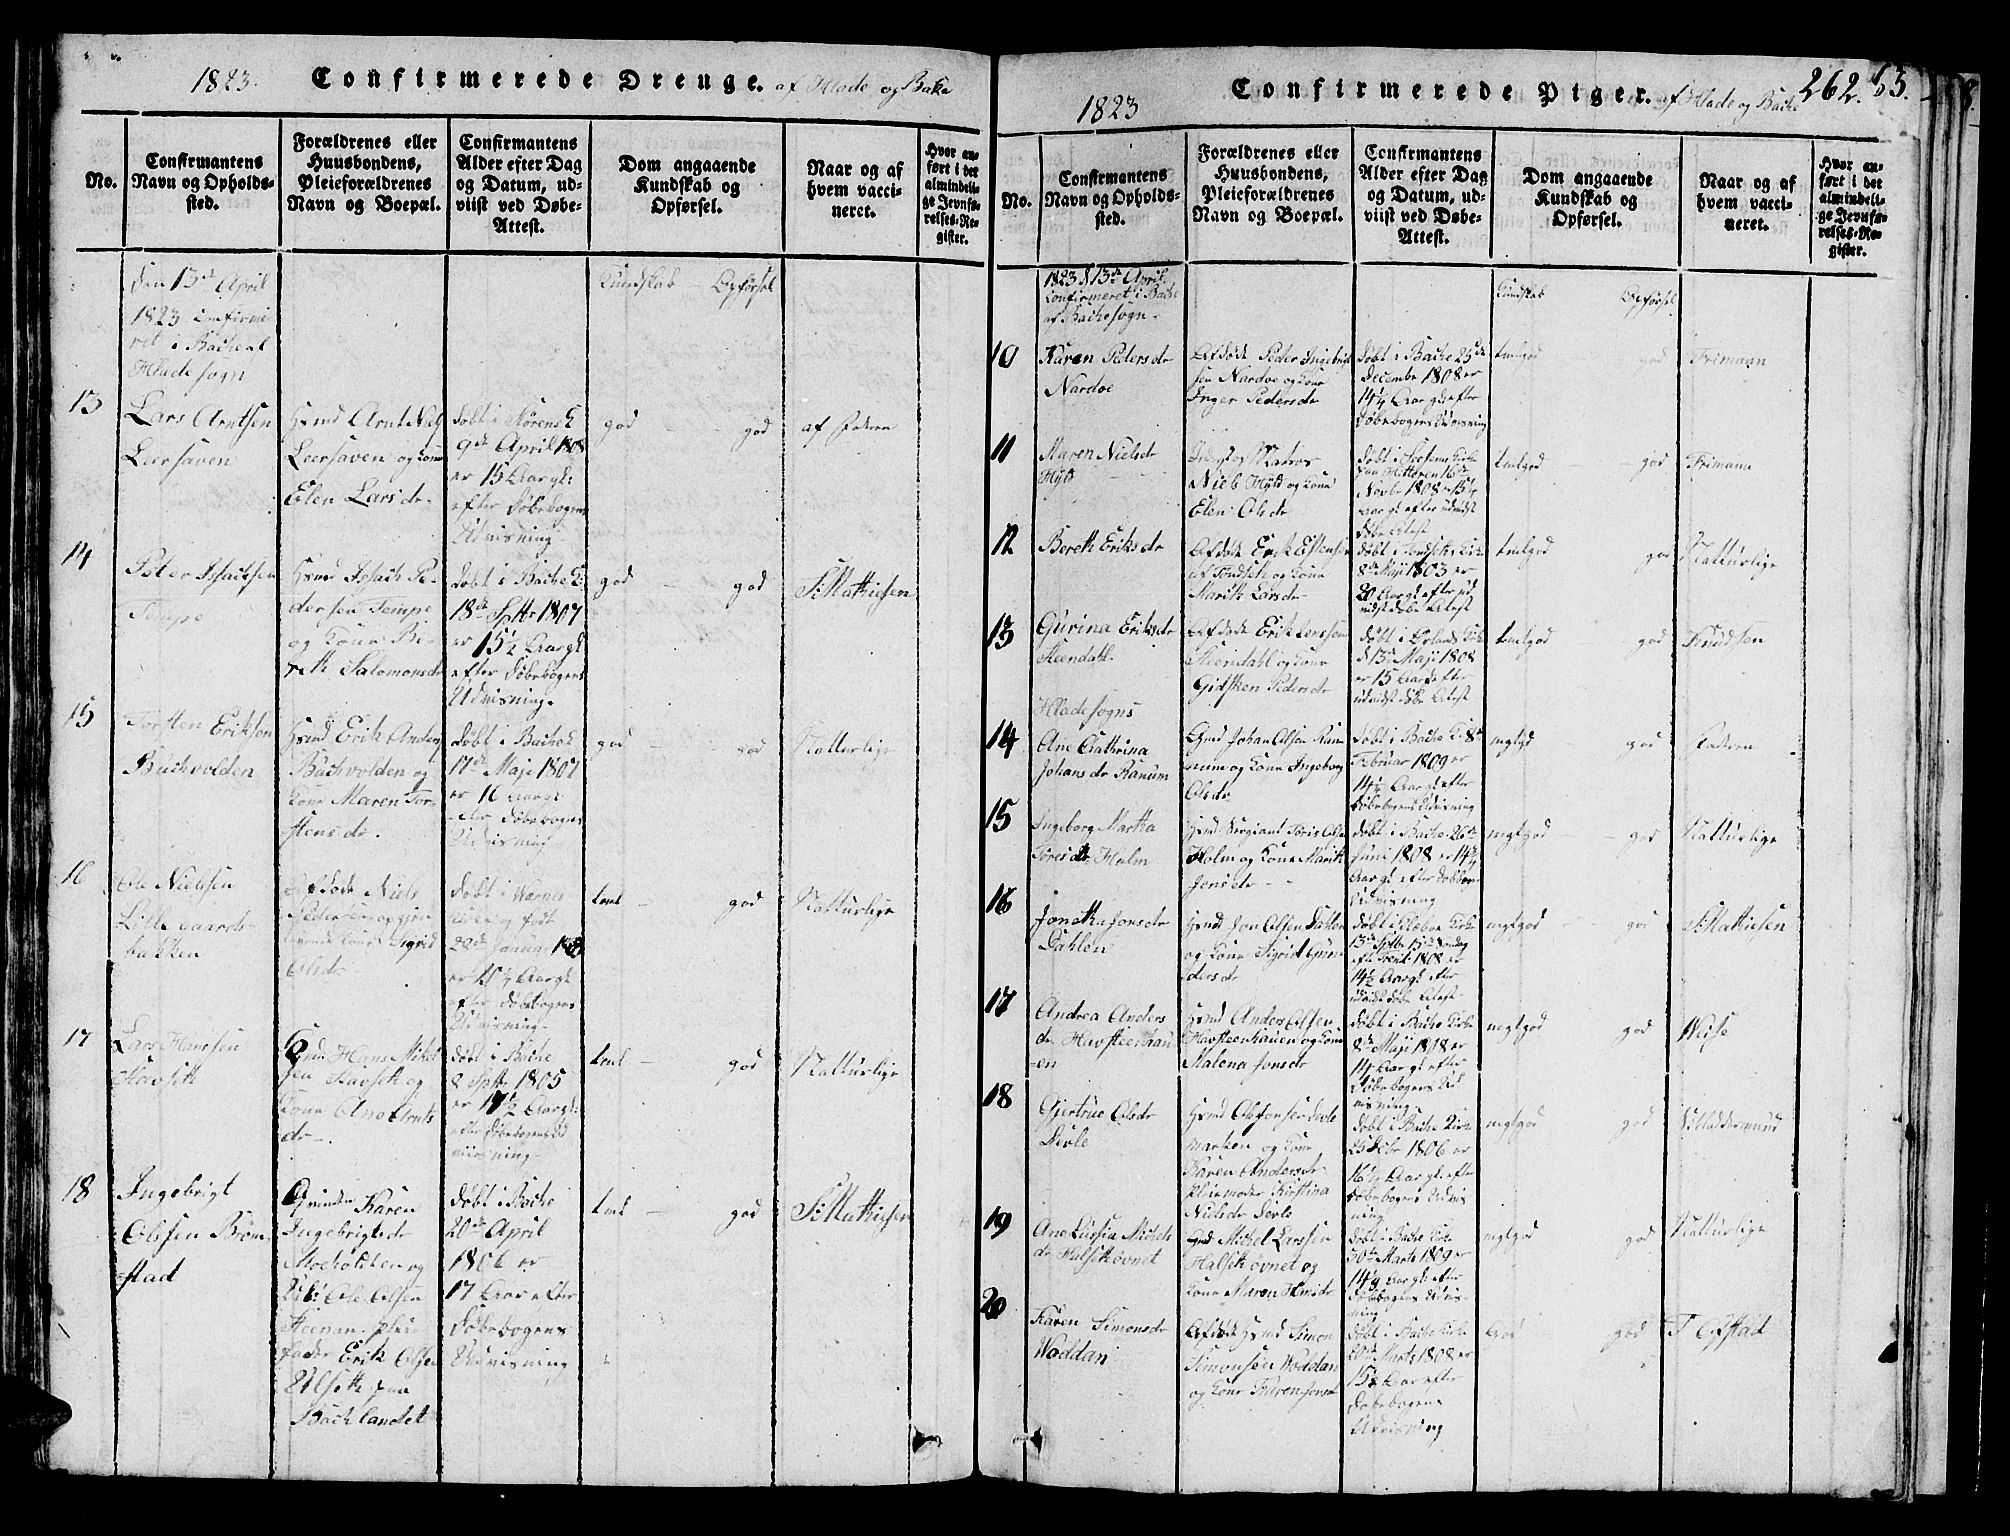 1823. Confirmerede Drenge. af Hlade og Bake
No.
Confirmantens Navn og Opholdssted.
Forældrenes eller Huusbondens, Pleieforældrenes Navn og Boepæl.
Confirmantens Alder efter Dag og Datum, udviist ved Døbe-Attest.
Dom angaaende Kundskab og Opførsel.
Naar og af hvem vaccineret.
Hvor anført i det almindelige Jevnførelses-Register.
den 13de April
1823 confirme
ret i Bache af
Hlade sogn
Kundskab - Opførsel
13
Lars Arntsen
Leersaven
Hsmd Arnt Niels
Leersaven og Kone
Elen Larsdr.
døbt i
9de April 1808
er 15 Aar gl:
efter Døbebogens
Udvisning
god
god
af Faderen
14
Peter Isachsen
Tempe
Hsmd Isach Pe-
dersen Tempe
og Kone Be-
reth Salomonsdr
døbt i Bache K:
18de Sptbr 1807
er 15½ Aar gl
efter Døbebogens
Udvisning.
god - god
S: Mathiesen
15
Torsten Eriksen
Buchvolden
Hsmd Erik Anders
Buchvolden og
Kone Maren Tor-
stensdr.
døbt i Bache K
17de Maji 1807
er 16 Aar gl:
efter Døbebogens
Udvisning
god - god
Natturlige
16
Ole Nielsen
Lille gaards-
bakken
Afdøde Niels
Pedersen og
levende Kone Sigrid
Olsdr
døbt i
og født
Januar
er Aar gl
efter Døbebogens
Udvisning
tml - god
Natturlige
17
Lars Hansen
Havseth
Hsmd Hans Mikel
sen Havseth og
Kone Ane Arnts
dr.
døbt i Bache
8 Sptbr 1805
er 17½ Aar gl:
efter Døbebogens Ud
viisning
tml - god
Natturlige
18
Ingebrigt
Olsen Brøm-
stad
Qvinden Karen
Ingebrigtsdr
Moeholden og
Ole Olsen
Steenan. pleie
fader Erik Olsen
Ulseth paa
Bachlandet
døbt i Bache
20de April
1806 er
17 Aar efter
Døbebogens
Udvisning
tml - god
S: Mathiesen
1823 Confirmerede Piger. af Hlade og Bache 262. 63.
No.
Confirmantens Navn og Opholdssted.
Forældrenes eller Huusbondens, Pleieforældrenes Navn og Boepæl.
Confirmantens Alder efter Dag og Datum, udviist ved Døbe-Attest.
Dom angaaende Kundskab og Opførsel.
Naar og af hvem vaccineret.
Hvor anført i det almindelige Jevnførelses-Register.
1823 d 13de April
confirmeret i Bache
af Bache sogn.
Kundskab Opførsel
10
Karen Pedersdr
Nardoe
Afdøde Peder Ingebrigt
sen Nardoe og Kone
Inger Pedersdr
døbt i Bache 25de
Decembr 1808 er
14¼ Aar gl efter
Døbebogens Udvisning
tmlgod god
Frimann
11
Maren Nielsdr
Hyld
Matros
Niels Hyld og Kone
Elen Olsdr
døbt i Kirke
paa Hitteren 16de
Novbr 1808
Aar gl efter udvist
Døbe Attest
tmlgod god
Frimann
12
Bereth Eriksdr
Afdøde Erik Estensen
af Tondseth og Kone
Marith Larsdr
døbt i Tondseths Kirke
8de Maji 1803 er
20 Aar gl efter ud
vist døbe Attest
tmlgod god
Natturlige
13
Gurina Eriksdr
Steendahl
Afdøde Erik Jenssen
Steendahl og Kone
Gidsken Pedersdr
døbt i Ørlands Kirke
d 13de Maji 1808
er 15 Aar gl efter
udvist døbe Attest
tmlgod god
Knudsen
Hlade sogns
14
Ane Cathrina
Johansdr Ranum
Gmd Johan Olsen Ran
num og Kone Ingeborg
Olsdr
døbt i Bache K: 8de
Februar 1809 er
14¼ Aar gl efter
Døbebogens Udvisning
mgtgd god
Faderen
15
Ingeborg Martha
Toresdr Holm
Hsmd Sergiant Toris Olsen
Holm og Kone Marith
Jensdr
døbt i Bache 26de
Juni 1808 er 14¾
Aar gl efter døbbog
Udvisning
mgtgod - god
Natturlige
16
Joneth Jonsdr
Dahlen
Hsmd Jon Olsen Dahlen
og Kone Sigrid Gun
dersdr
døbt i Klæboe Kirke
13de Sptbr 13de Søndag
efter Trinit: 1808 er
14½ Aar gl efter
udvist døbe Attest
mgtgod - god
S: Mathiesen
17
Andrea Anders
dr Havsteenhau
en
Hsmd Anders Olsen
Havsteenhauen og Kone
Malena Jonsdr
døbt i Bache Kirke
8de Maji er
14 Aar gl efter
Døbebogens Ud
visning
megtgod god
Weise
18
Gjertrue Olsdr
Devle
Hsmd Ole Jonsen Devle
marken og Kone
Karen Andersdr
pleiemoder Kirstina
Nielsdr Devle
døbt i Bache Kirke
25 Febr 1806 er
16¼ Aar gl efter
Døbebogens Udvis
ning
mgtgod god
19
Ane Lucsia Michels
dr Halsethøvnet
Gmd Michel Larssen
Halsethøvnet og
Kone Maren Hansdr
døbt i Bache Kirke
30te Marts 1809 er
14¼ Aar gl efter
Døbebogens Udvis-
ning
mgtgod god
Natturlige
20
Karen Simonsdr
Woddan
Afdøde Hsmd Simon
Simonsen Woddan
og Kone Karen Jonsdr
døbt i Bache Kirke
20de Marts 1808 er
15¼ Aar efter
Døbebogens
Udvisning
God - god
T Ofstad